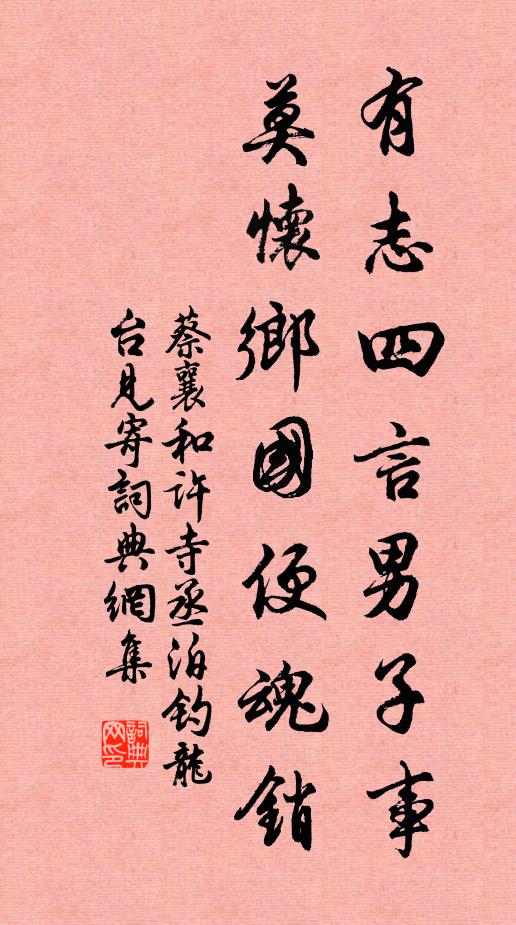 有志四言男子事
莫懷鄉國便魂銷
蔡襄和許寺丞泊釣龍
台見寄詞典網集
詞典
网印